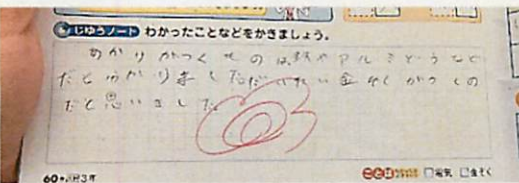 じゆうノート わかったことなどをかきましょう。
あかりがつくものは鉄やアルミどうなど
だとわかりました だい 金ぞくがつくの
だと思いました
60 3年
ことば □電気 □金ぞく